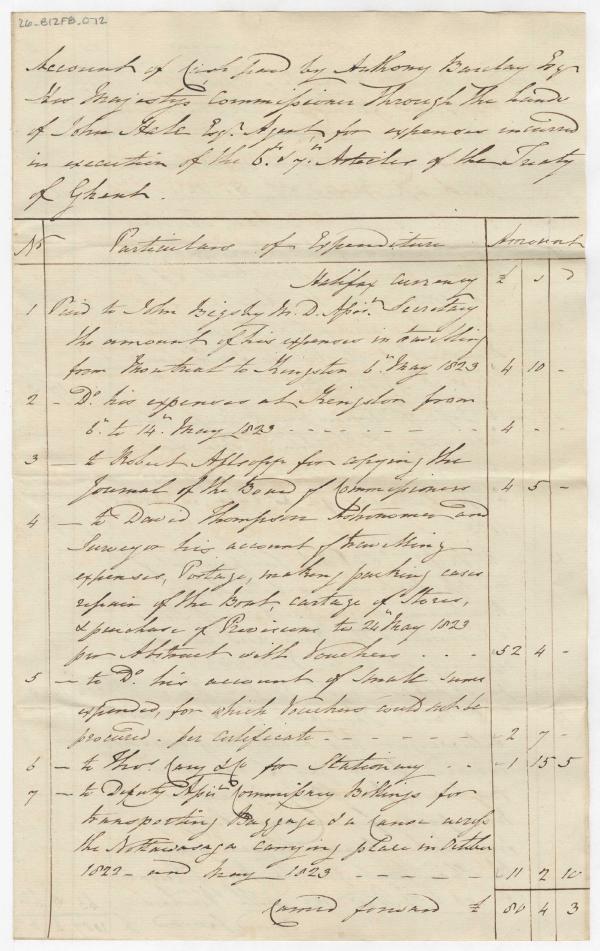 26-B12FB-072
Account of Cash paid by Anthony Barclay Esqr
His Majesty's Commissioner through the hands
of John Hale Esqr. Agent for expenses incurred
in execution of the 6th & 7th Articles of the Treaty
of Ghent.
No Particulars of Expenditure Amount
Halifax currency £ s D
1 Paid to John Bigsby M.D. Assist. Secretary
the amount of his expenses in travelling
from Montreal to Kingston 6th May 1823 4 10 -
2 - Do. his expenses at Kingston from
6th to 14th May 1823 - - - - - - - 4 - -
3 - to Robert Allsopp for copying the
Journal of the Board of Commissioners 4 5 -
4 - to David Thompson Astronomer and
Surveyor his account of travelling
expenses, Postage, making packing cases
repair of the Boat, cartage of Stores,
& purchase of Provisions to 24th May 1823
per Abstract with Vouchers . . . 52 4 -
5 - to Do. his account of small sums
expended, for which Vouchers could not be
procured - per certificate - - - - - 2 7 -
6 - to Thos. Cary & Co for Stationary - - 1 15 5
7 - to Deputy Assist. Commissary Billings for
transporting Baggage & a Canoe across
the Nottawasaga carrying place in October
1822 - and May 1823 - - - - - 11 2 10
Carried forward £ 80 4 3